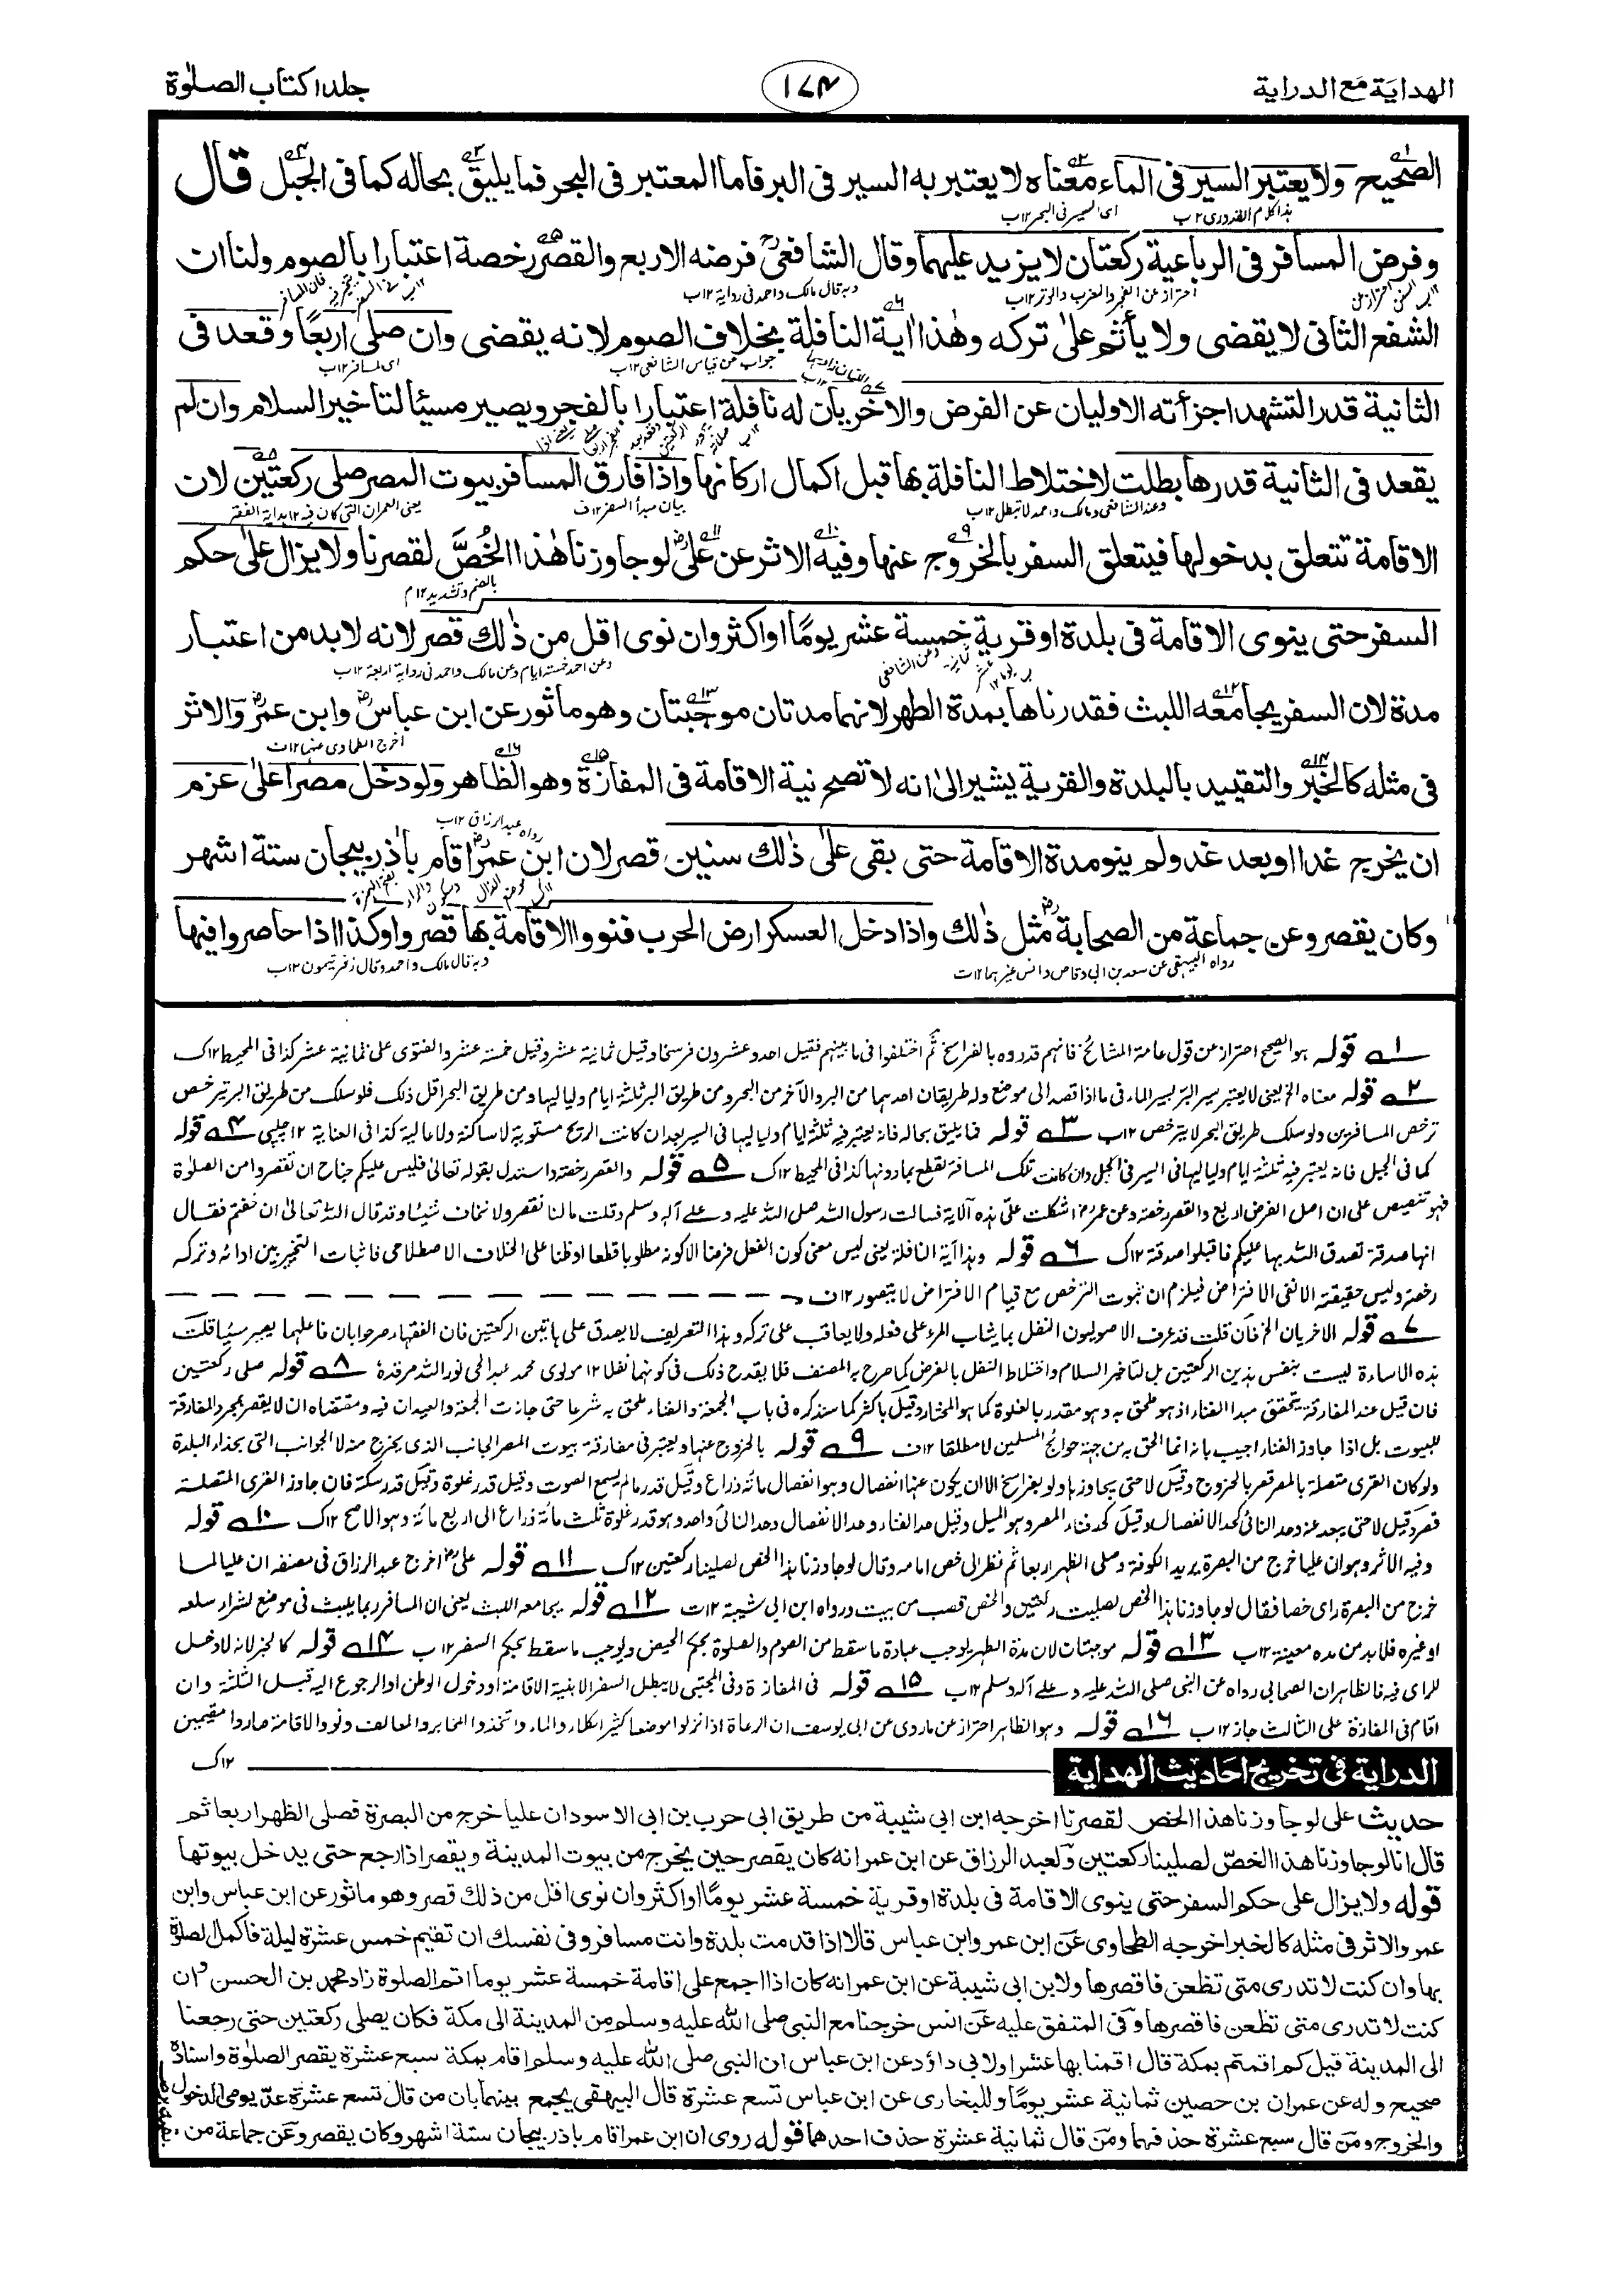 الهداية مع الدراية
١٧٤
جلد ١ كتاب الصلوٰة
الصحيح ولا يعتبر السير فى الماء معناه لا يعتبر به السير فى البر فاما المعتبر فى البحر فما يليق بحاله كما فى الجبل قال
وفرض المسافر فى الرباعية ركعتان لا يزيد عليهما وقال الشافعىؒ فرضه الاربع والقصر رخصة اعتبارا بالصوم ولنا ان
الشفع الثانى لا يقضى ولا يأثم علىٰ تركه وهٰذا اٰية النافلة بخلاف الصوم لانه يقضى وان صلى اربعًا وقعد فى
الثانية قدر التشهد اجزأته الاوليان عن الفرض والاخريان له نافلة اعتبارا بالفجر ويصير مسيئا لتاخير السلام وان لم
يقعد فى الثانية قدرها بطلت لاختلاط النافلة بها قبل اكمال اركانها واذا فارق المسافر بيوت المصر صلى ركعتين لان
الاقامة تتعلق بدخولها فيتعلق السفر بالخروج عنها وفيه الاثر عن علىؓ لو جاوزنا هٰذا الخُصَّ لقصرنا ولا يزال علىٰ حكم
السفر حتى ينوى الاقامة فى بلدة او قرية خمسة عشر يومًا او اكثر وان نوى اقل من ذٰلك قصر لانه لا بد من اعتبار
مدة لان السفر يجامعه اللبث فقدرناها بمدة الطهر لانهما مدتان موجبتان وهو ماثور عن ابن عباسؓ وابن عمرؓ والاثر
فى مثله كالخبر والتقييد بالبلدة والقرية يشير الىٰ انه لا تصح نية الاقامة فى المفازة وهو الظاهر ولو دخل مصرا علىٰ عزم
ان يخرج غدا او بعد غد ولم ينو مدة الاقامة حتى بقى علىٰ ذٰلك سنين قصر لان ابن عمرؓ اقام باٰذربيجان ستة اشهر
وكان يقصر وعن جماعة من الصحابةؓ مثل ذٰلك واذا دخل العسكر ارض الحرب فنووا الاقامة بها قصروا وكذا اذا حاصروا فيها
١ قوله هو الصحيح احتراز عن قول عامة المشائخ فانهم قدروه بالفراسخ ثم اختلفوا فى ما بينهم فقيل احد وعشرون فرسخا وقيل ثمانية عشر وقيل خمسة عشر والفتوى على ثمانية عشر كذا فى المحيط ١٢ ك
٢ قوله معناه الخ يعنى لا يعتبر سير البر بسير الماء فى ما اذا قصد الى موضع وله طريقان احدهما من البر والآخر من البحر ومن طريق البر ثلثة ايام ولياليها ومن طريق البحر اقل ذلك فلو سلك من طريق البر ترخص
ترخص المسافرين ولو سلك طريق البحر لا يترخص ١٢ ب ٣ قوله فما يليق بحاله فانه يعتبر فيه ثلثة ايام ولياليها فى السير بعد ان كانت الريح مستوية لا ساكنة ولا عالية كذا فى العناية ١٢ چلپى ٤ قوله
كما فى الجبل فانه يعتبر فيه ثلثة ايام ولياليها فى السير فى الجبل وان كانت تلك المسافة يقطع بما دونها كذا فى المحيط ١٢ ك ٥ قوله والقصر رخصة واستدل بقوله تعالىٰ فليس عليكم جناح ان تقصروا من الصلوٰة
فهو تنصيص على ان اصل الفرض اربع والقصر رخصة وعن عمرؓ اشكلت علىّ هذه الآية فسالت رسول الله صلى الله عليه وعلى آله وسلم وقلت ما لنا نقصر ولا نخاف شيئا وقد قال الله تعالىٰ ان خفتم فقال
انها صدقة تصدق الله بها عليكم فاقبلوا صدقة ١٢ ك ٦ قوله وهذا آية النافلة يعنى ليس معنى كون الفعل فرضا الا كونه مطلوبا قطعا او ظنا على الخلاف الاصطلاحى فاثبات التخيير بين ادائه وتركه
رخصة وليس حقيقته الا نفى الافتراض فيلزم ان ثبوت الترخص مع قيام الافتراض لا يتصور ١٢ ف
٧ قوله الاخريان الخ فان قلت قد عرف الاصوليون النفل بما يثاب المرء على فعله ولا يعاقب على تركه وهذا التعريف لا يصدق على هاتين الركعتين فان الفقهاء صرحوا بان فاعلهما يصير مسيئا قلت
هذه الاساءة ليست بنفس هذين الركعتين بل لتاخير السلام واختلاط النفل بالفرض كما صرح به المصنف فلا يقدح ذلك فى كونهما نفلا ١٢ مولوى محمد عبد الحى نور الله مرقدة ٨ قوله صلى ركعتين
فان قيل عند المفارقة يتحقق مبدا الفناء اذ هو ملحق به وهو مقدر بالغلوة كما هو المختار وقيل باكثر كما سنذكره فى باب الجمعة والفناء ملحق به شرعا حتى جازت الجمعة والعيدان فيه ومقتضاه ان لا يقصر بمجرد المفارقة
للبيوت بل اذا جاوز الفناء اجيب بانه انما الحق به من جهة حوائج المسلمين لا مطلقا ١٢ ف ٩ قوله بالخروج عنها ويعتبر فى مفارقة بيوت المصر الجانب الذى يخرج منه لا الجوانب التى بحذاء البلدة
ولو كان القرى متصلة بالمصر قصر بالخروج وقيل لا حتى يجاوزها ولو بفراسخ الا ان يكون عنها انفصال وهو انفصال مائة ذراع وقيل قدر ما لم يسمع الصوت وقيل قدر غلوة وقيل قدر سكة فان جاوز القرى المتصلة
قصر وقيل لا حتى يبعد عنه وحد النائى كحد الانفصال وقيل كحد فناء المصر وهو الميل وقيل حد الفناء وحد الانفصال وحد النائى واحد وهو قدر غلوة ثلث مائة ذراع الى اربع مائة وهو الاصح ١٢ ك ١٠ قوله
وفيه الاثر وهو ان عليا خرج من البصرة يريد الكوفة وصلى الظهر اربعا ثم نظر الى خص امامه وقال لو جاوزنا هذا الخص لصلينا ركعتين ١٢ ك ١١ قوله علىؓ اخرج عبد الرزاق فى مصنفه ان عليا لما
خرج من البصرة راى خصا فقال لو جاوزنا هذا الخص لصليت ركعتين والخص قصب من بيت ورواه ابن ابى شيبة ١٢ ت ١٢ قوله يجامعه اللبث يعنى ان المسافر ربما يلبث فى موضع لشراء سلعه
او غيره فلا بد من مده معينة ١٢ ب ١٣ قوله موجبتان لان مدة الطهر يوجب عبادة ما سقط من الصوم والصلوة بحكم الحيض ويوجب ما سقط بحكم السفر ١٢ ب ١٤ قوله كالخبر لانه لا دخل
للراى فيه فالظاهر ان الصحابى رواه عن النبى صلى الله عليه وعلى آله وسلم ١٢ ب ١٥ قوله فى المفازة وفى المجتبى لا يبطل السفر الا بنية الاقامة او دخول الوطن او الرجوع اليه قبل الثلثة وان
اقام فى المفازة على الثالث جاز ١٢ ب ١٦ قوله وهو الظاهر احتراز عن ما روى عن ابى يوسف ان الرعاة اذا نزلوا موضعا كثير الكلاء والماء واتخذوا المخابر والمعالف ونووا الاقامة صاروا مقيمين
١٢ ك
الدراية فى تخريج احاديث الهداية
حديث على لو جاوزنا هذا الخص لقصرنا اخرجه ابن ابى شيبة من طريق ابى حرب بن ابى الاسود ان عليا خرج من البصرة فصلى الظهر اربعا ثم
قال انا لو جاوزنا هذا الخصّ لصلينا ركعتين ولعبد الرزاق عن ابن عمر انه كان يقصر حين يخرج من بيوت المدينة ويقصر اذا رجع حتى يدخل بيوتها
قوله ولا يزال على حكم السفر حتى ينوى الاقامة فى بلدة او قرية خمسة عشر يومًا او اكثر وان نوى اقل من ذلك قصر وهو ماثور عن ابن عباس وابن
عمر والاثر فى مثله كالخبر اخرجه الطحاوى عن ابن عمر وابن عباس قالا اذا قدمت بلدة وانت مسافر وفى نفسك ان تقيم خمس عشرة ليلة فاكمل الصلوة
بها وان كنت لا تدرى متى تظعن فاقصرها ولابن ابى شيبة عن ابن عمر انه كان اذا اجمع على اقامة خمسة عشر يوما اتم الصلوة زاد محمد بن الحسن وان
كنت لا تدرى متى تظعن فاقصرها وفى المتفق عليه عن انس خرجنا مع النبى صلى الله عليه وسلم من المدينة الى مكة فكان يصلى ركعتين حتى رجعنا
الى المدينة قيل كم اقمتم بمكة قال اقمنا بها عشرا ولابى داؤد عن ابن عباس ان النبى صلى الله عليه وسلم اقام بمكة سبع عشرة يقصر الصلوٰة واسناده
صحيح وله عن عمران بن حصين ثمانية عشر يومًا وللبخارى عن ابن عباس تسع عشرة قال البيهقى يجمع بينهما بان من قال تسع عشرة عدّ يومى الدخول
والخروج ومن قال سبع عشرة حذفهما ومن قال ثمانية عشرة حذف احدهما قوله روى ان ابن عمر اقام باذربيجان ستة اشهر وكان يقصر وعن جماعة من